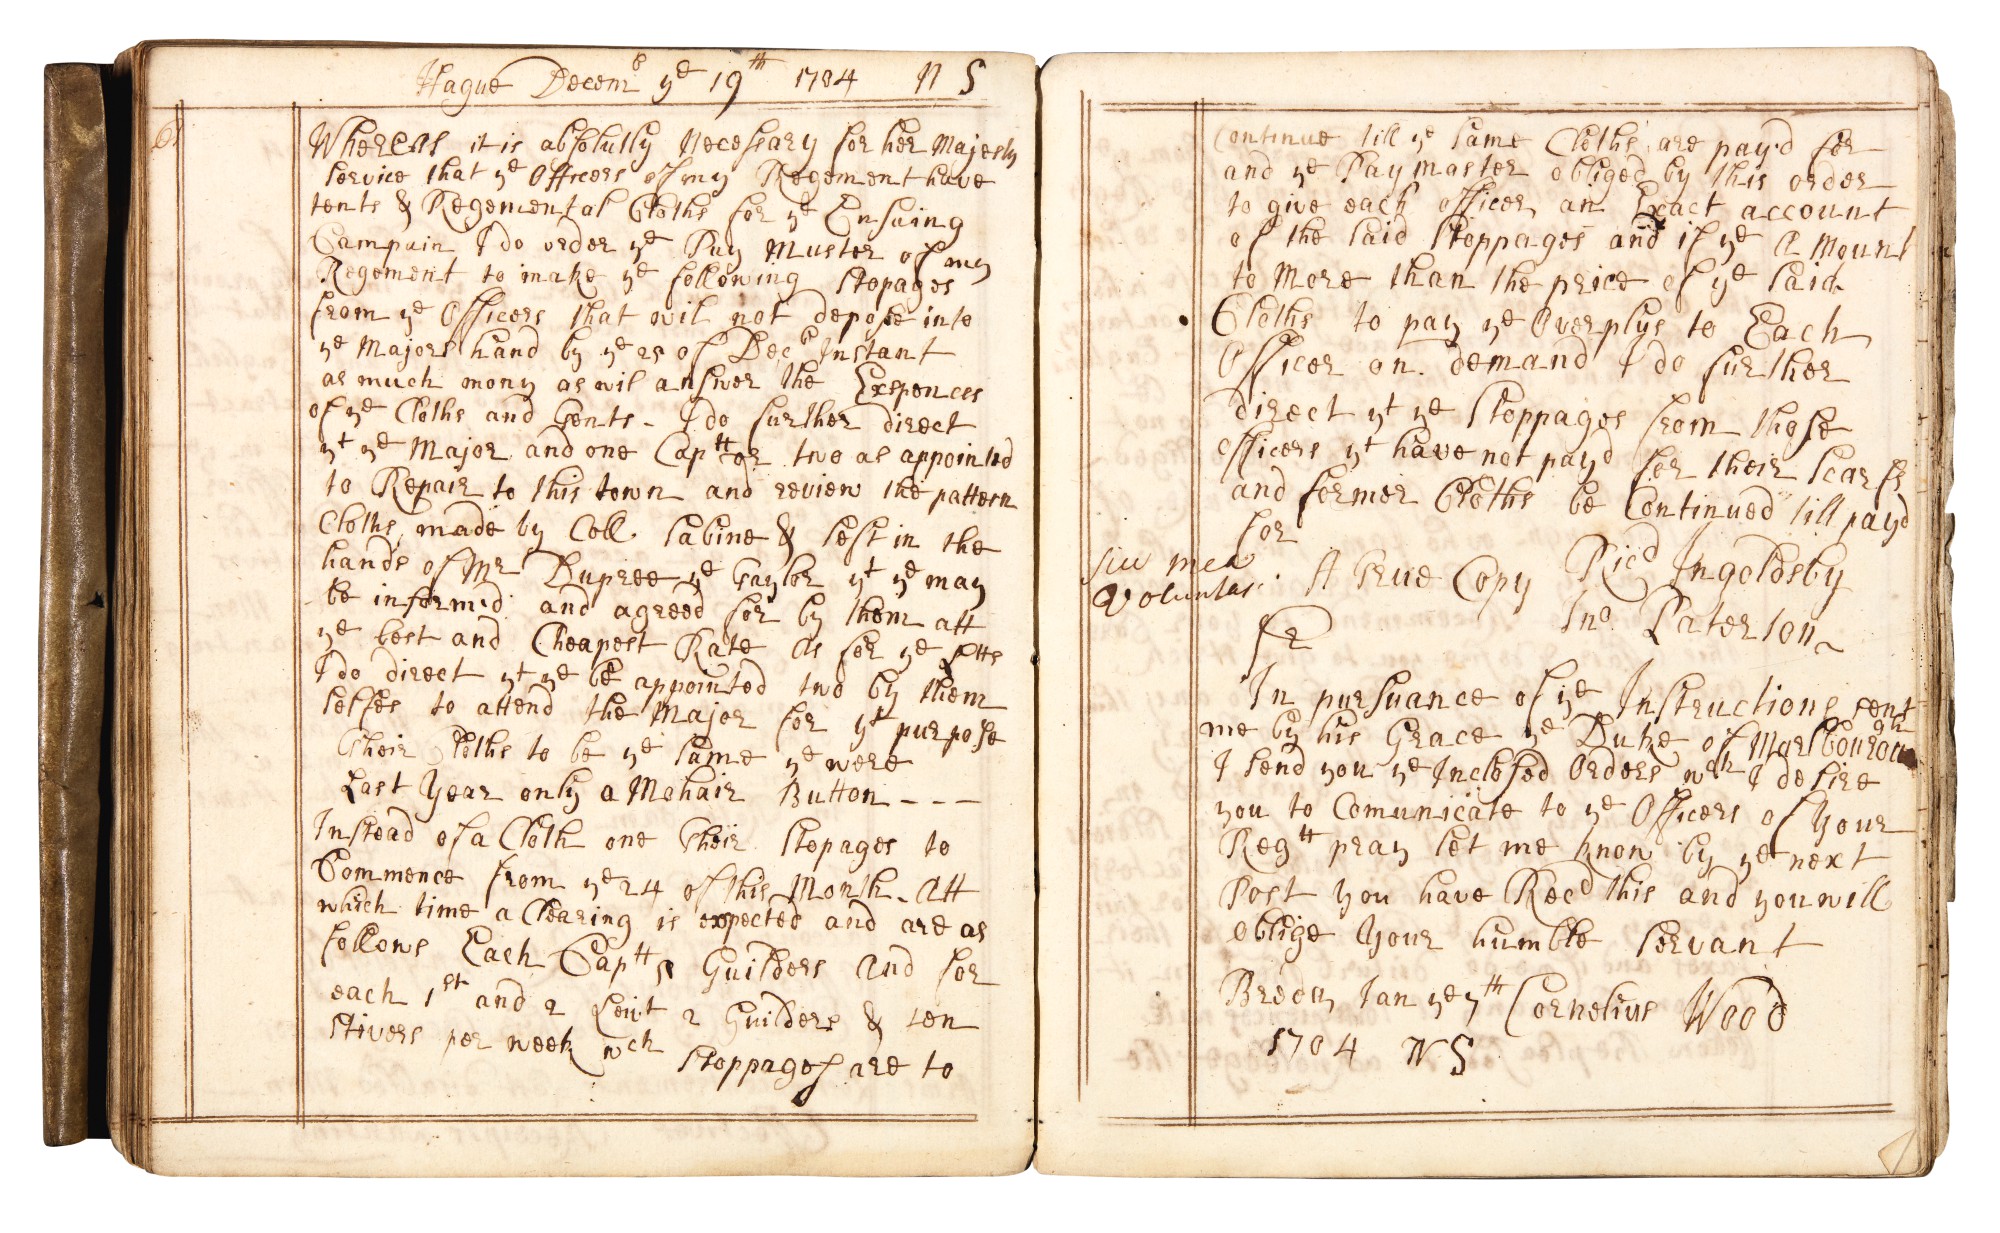 Hague Decemb ye 19th 1704 N S
61
Whereas it is absolutly Necessary for her Majesty
Service that ye Officers of my Regement have
tents & Regemental Cloths for ye Ensuing
Campain I do order ye Pay Master of my
Regement to make ye following Stopages
from ye Officers that wil not depose into
ye Majors hand by ye 25 of Decb Instant
as much mony as wil answer the Exspences
of ye Cloths and tents - I do further direct
yt ye Major and one Captt or two as appointed
to Repair to this town and review the pattern
Cloths made by Coll Sabine & Left in the
hands of Mr Dupree ye Taylor yt ye may
be informd and agreed for by them att
ye best and Cheapest Rate As for ye Ltts
I do direct yt ye be appointed two by them
Selfes to attend the Major for yt purpose
their Cloths to be ye same ye were
Last Year only a Mohair Button - - -
Instead of a Cloth one their Stopages to
Commence from ye 24 of this Month - Att
which time a Clearing is expected and are as
follows Each Captt 5 Guilders and for
each 1st and 2 Leiut 2 Guilders & ten
Stivers per week wch Stoppages are to
Continue till ye same Cloths are pay'd for
and ye Paymaster obliged by this order
to give each officer an Exact account
of the said Stoppages and if ye Amount
to More than the price of ye said
Cloths to pay ye Overplus to Each
Officer on demand I do further
direct yt ye Stoppages from those
officers yt have not payd for their Scarfs
and former Cloths be Continued till payd
for
Siu mea
Voluntas
A true Copy Ricd Ingoldsby
Jno. Paterson
Sr
In pursuance of ye Instructions sent
me by his Grace ye Duke of Marlbourough
I send you ye Inclosed Orders wch I desire
you to Comunicate to ye Officers of Your
Regtt pray let me know by ye next
Post you have Recd this and you will
oblige Your humble Servant
Breda Jan ye 7th Cornelius Wood
1704 N S